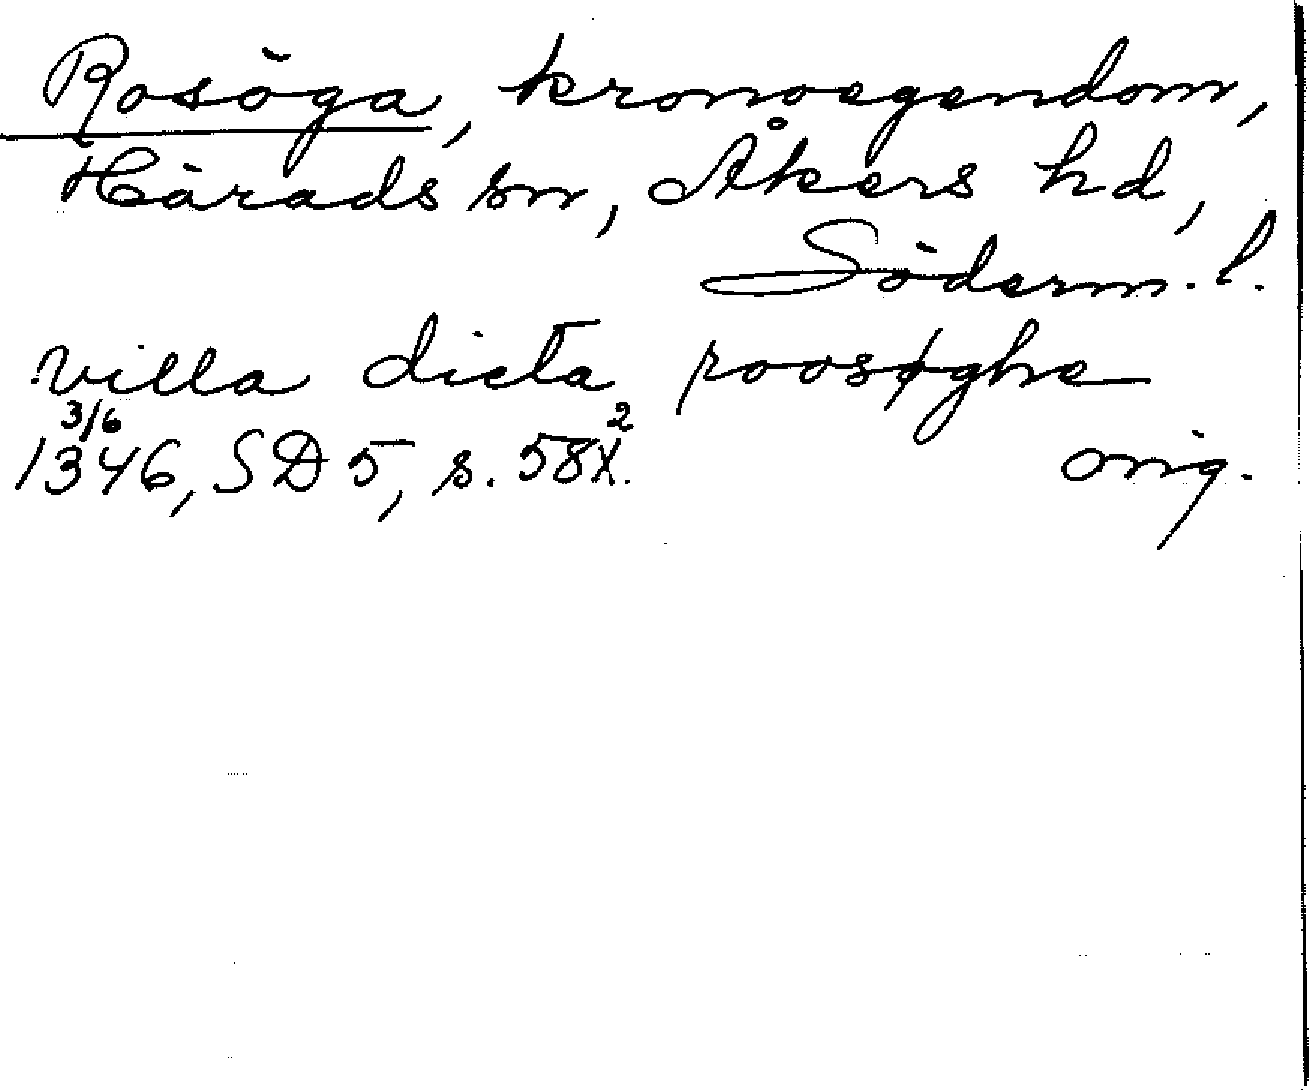 Rosöga, kronoegendom,
Härads sn, Åkers hd,
Söderm. l.
villa dicta roosøghe
3/6 2
1346, SD 5, s. 58X. orig.